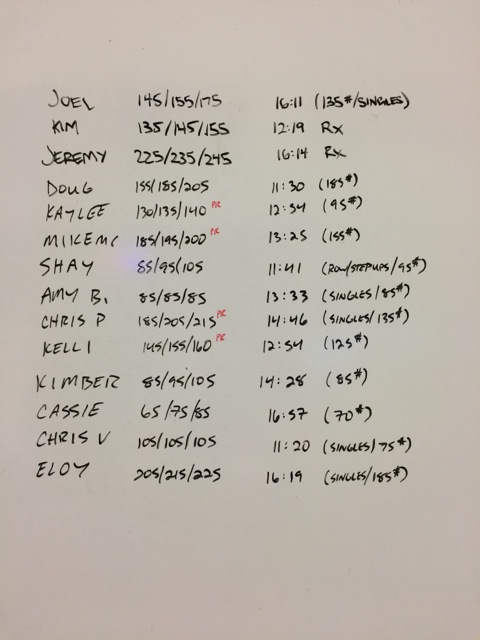 JOEL 145/155/175 16:11 (135#/SINGLES)
KIM 135/145/155 12:19 RX
JEREMY 225/235/245 16:14 RX
DOUG 155/185/205 11:30 (185#)
KAYLEE 130/135/140 PR 12:54 (95#)
MIKE MC 185/195/200 PR 13:25 (155#)
SHAY 85/95/105 11:41 (ROW/STEPUPS/95#)
AMY B. 85/85/85 13:33 (SINGLES/85#)
CHRIS P 185/205/215 PR 14:46 (SINGLES/135#)
KELLI 145/155/160 PR 12:54 (125#)
KIMBER 85/95/105 14:28 (85#)
CASSIE 65/75/85 16:57 (70#)
CHRIS V 105/105/105 11:20 (SINGLES/75#)
ELOY 205/215/225 16:19 (SINGLES/185#)